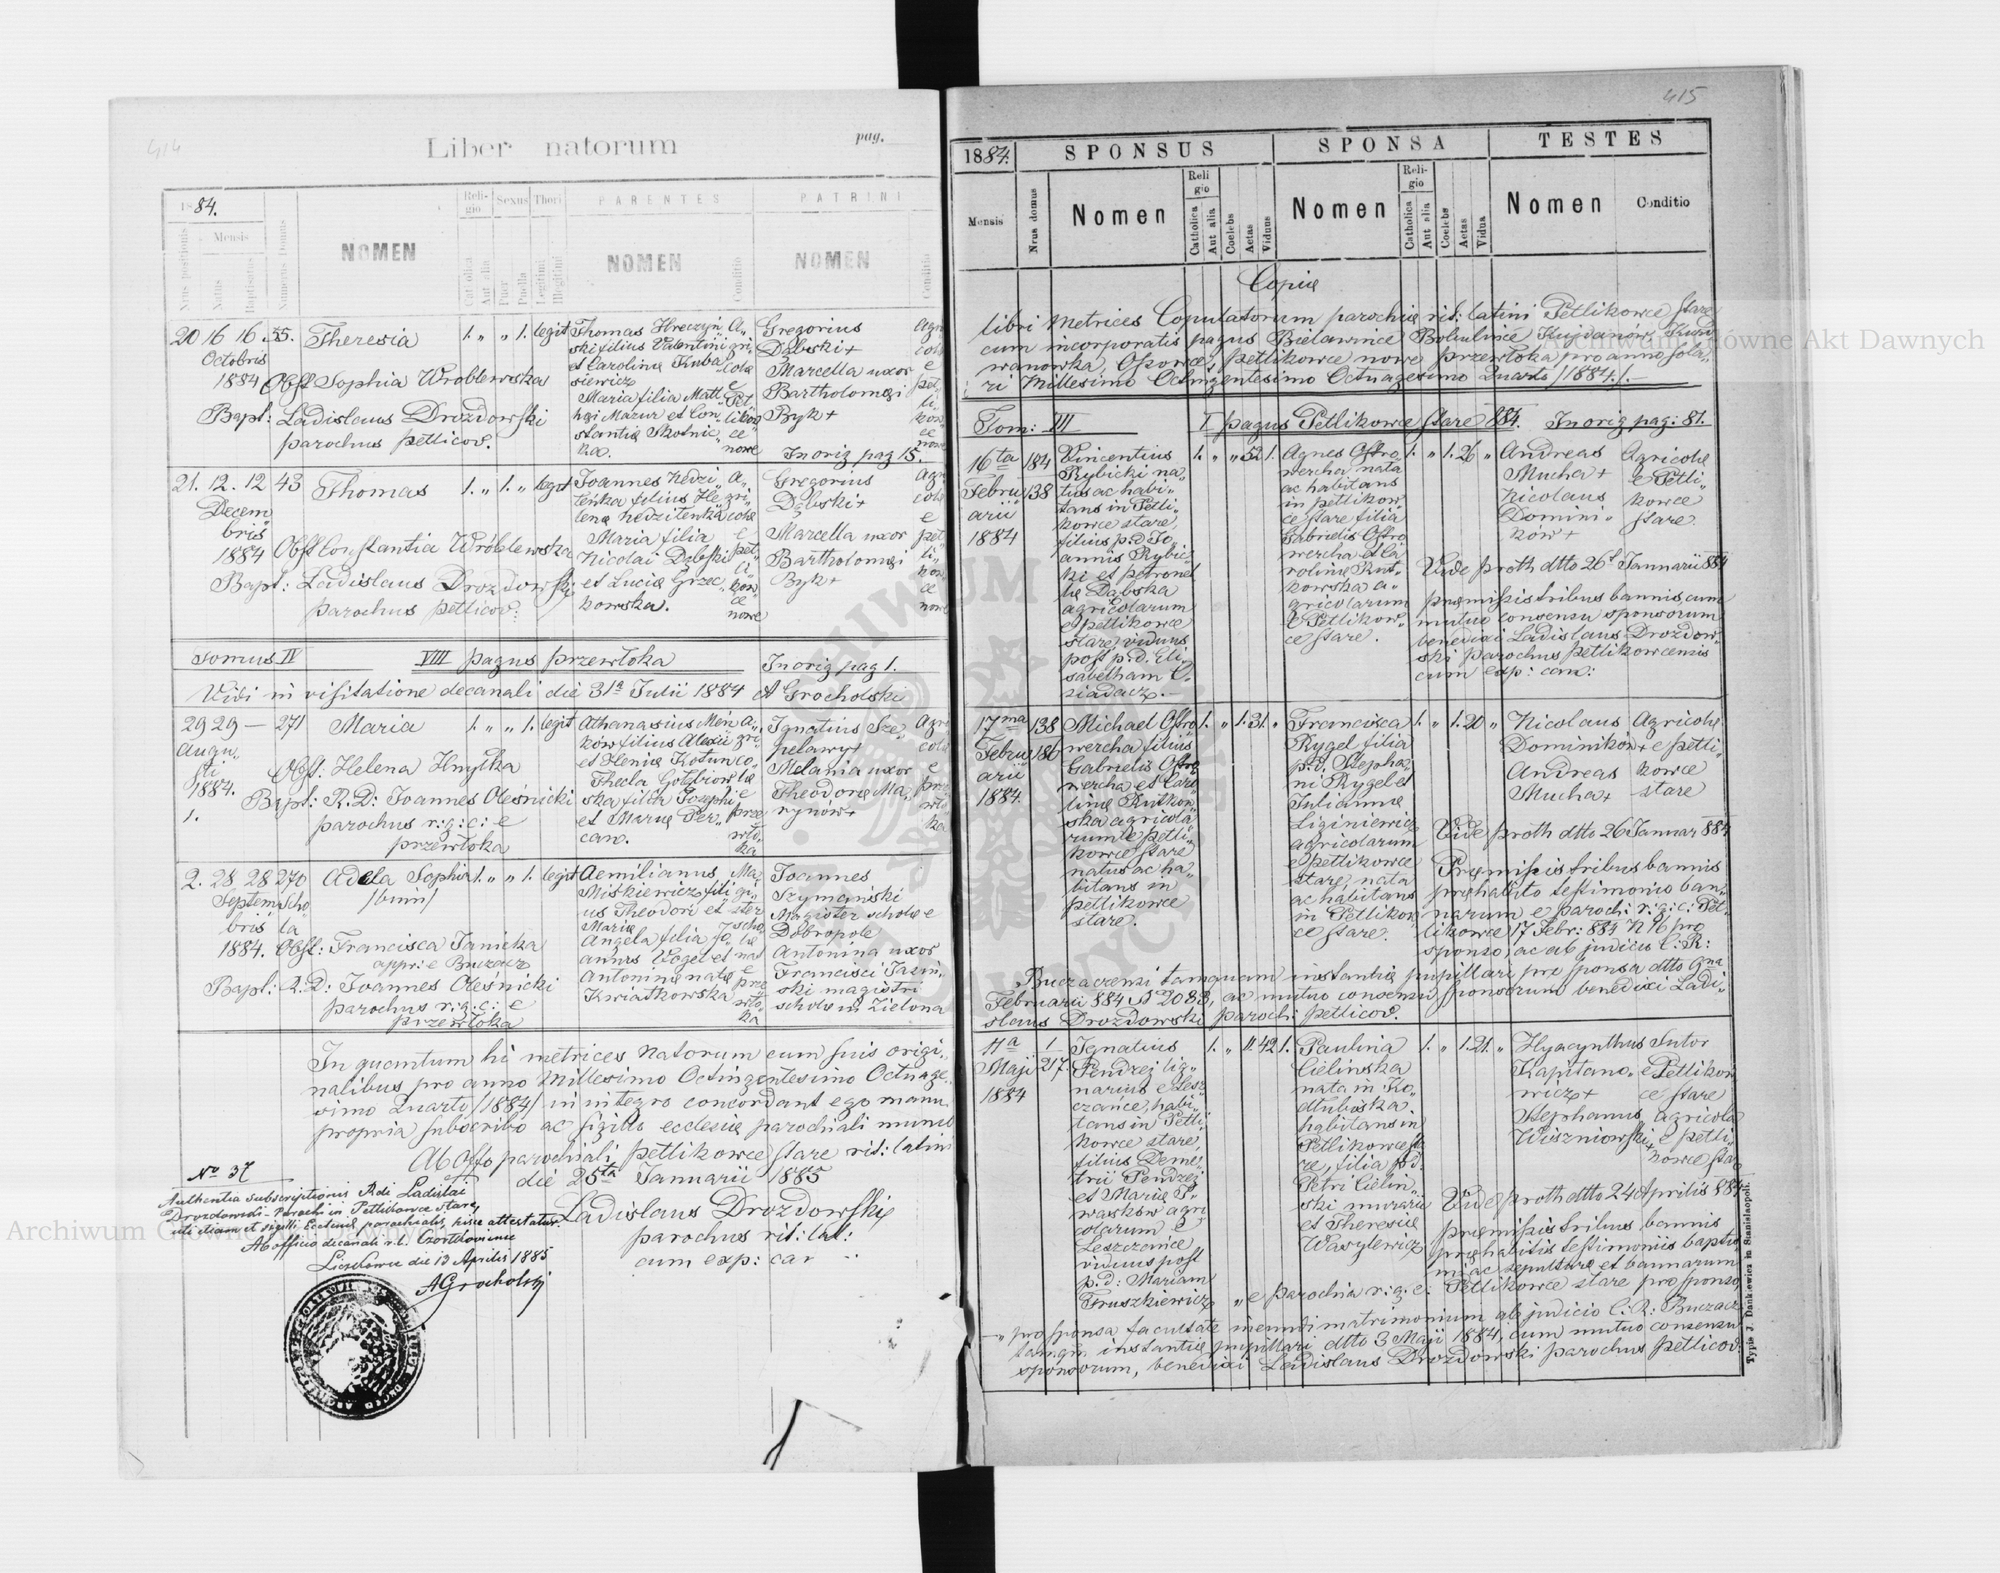 414
Liber natorum
pag.
1884.
Nrus positionis
Mensis
Natus
Baptisatus
Numerus Domus
NOMEN
Reli-
gio
Catolica
Aut alia
Sexus
Puer
Puella
Thori
Legitimi
Illegitimi
PARENTES
NOMEN
Conditio
PATRINI
NOMEN
Conditio
20 16 16 55. Theresia 1. „ „ 1. legit
Octobris
1884 Obst Sophia Wroblewska
Bapt: Ladislaus Drozdowski
parochus petlicov.
Thomas Hreczyń
ski filius Valentini
et Carolinę Kuba
siewicz
Maria filia Matt
hęi Mazur et Con
stantię Skotnic
ka.
Gregorius
Dąbski +
Marcella uxor
Bartholomęi
Byk +
In orig pag 15.
21. 12. 12 43 Thomas 1. „ 1. „ legit
Decem
bris
1884 Obst Constantia Wróblewska
Bapt: Ladislaus Drozdowski
parochus petlicov.
Joannes Kedzi
teńka filius He
lenę Kedzitenka
Maria filia
Nicolai Dąbski
et Lucię Grzec
kowska.
Gregorius
Dąbski +
Marcella uxor
Bartholomęi
Byk +
Tomus IV VIII pagus przewłoka In orig pag 1.
Vidi in visitatione decanali die 31a Julii 1884 A Grocholski
29 29 — 271 Maria 1. „ „ 1. legit
Augu
sti
1884.
1.
Obst: Helena Hnytka
Bapt: R. D: Joannes Oleśnicki
parochus r: g: c: e
przewłoka
Athanasius Mén
ków filius Alexii
et Helenię Kotun
Thecla Gołębiow
ska filia Josephi
et Marię Per
can.
Ignatius Sze
pelawy +
Melania uxor
Theodorę Ma
rynów +
2. 28 28 270 Adela Sophia 1. „ „ 1. legit
Septem Scho
bris la
/bini/
1884. Obst: Francisca Janicka
appr: e Buczacz
Bapt: R. D: Joannes Oleśnicki
parochus r: g: c: e
przewłoka
Aemilianus
Miskiewicz fili
us Theodori et
Marię
Angela filia Jo
annis Vogel et
Antoninę natę
Kwiatkowska
Joannes
Szymański
Magister scholę e
Dobropole
Antonina uxor
Francisci Jasiń
ski magistri
scholę in Zielona
In quantum hi metrices Natorum cum suis origi
nalibus pro anno Millesimo Octingentesimo Octuage
simo Quarto /1884/ in integro concordant ego manu
propria subscribo ac sigillo ecclesię parochiali munio
Ab Offo parochiali Petlikowce stare rit: latini
die 25ta Januarii 1885
Ladislaus Drozdowski
parochus rit: lat:
cum exp: can
No 37
Authentia subscriptionis Rdi Ladislai
Drozdowski - Parochi in Petlikowce stare,
uti etiam et sigilli Ecclesię parochialis, hisce attestatur.
Ab officio decanali r. l. Czortkoviensi
Liczkowce die 13 Aprilis 1885
AGrocholski
415
1884.
SPONSUS
SPONSA
TESTES
Mensis
Nrus domus
Nomen
Reli
gio
Catholica
Aut alia
Coelebs
Aetas
Viduus
Nomen
Reli-
gio
Catholica
Aut alia
Coelebs
Aetas
Vidua
Nomen
Conditio
Copia
libri Metrices Copulatorum parochię rit: latini Petlikowce stare
cum incorporatis pagus Bielawince Bobulince Kujdanów Kurd
wanówka, Osowce, petlikowce nowe przewłoka pro anno sola
ri Millesimo Octingentesimo Octuagesimo Quarto /1884./.
Tom: VII I pagus Petlikowce stare 884. In orig pag: 81.
16ta
Febru
arii
1884
184
138
Vincentius
Rybicki na
tus ac habi
tans in Petli
kowce stare,
filius p. d. Jo
annis Rybic
ki et petronel
lę Dąbska
agricolarum
e petlikowce
stare, viduus
post p. d. Eli
sabetham C
ziadacz.
1. „ „ 52 1.
Agnes Ostro
wercha nata
ac habitans
in petlikow
ce stare filia
Gabrielis Ostro
wercha et Ca
rolinę Rut
kowska a
gricolarum
e Petlikow
ce stare.
1. „ 1. 26 „
Andreas
Mucha +
Nicolaus
Domini
ków +
Agricolę
e Petli
kowce
stare.
Vide proth dtto 26 Januarii 884
pręmissis tribus bannis cum
mutuo consensu sponsorum
benedixi Ladislaus Drozdow
ski parochus Petlikowcensis
cum exp: can:
17ma
Febru
arii
1884.
138
180
Michael Ostro
wercha filius
Gabrielis Ostro
wercha et Caro
linę Rutkow
ska agricola
rum e petli
kowce stare
natus ac ha
bitans in
petlikowce
stare.
1. „ 1. 31. „
Francisca
Rygel filia
p. d. Stepha
ni Rygel et
Juliannę
Liginiewicz
agricolarum
e petlikowce
stare, nata
ac habitans
in Petlikow
ce stare.
1. „ 1. 20 „
Nicolaus
Dominików +
Andreas
Mucha +
Agricolę
e petli
kowce
stare
Vide proth dtto 26 Januar 884
Pręmissis tribus bannis
pręhabito testimonio ban
narum e parochi r: g: c: Pet
likowce 17 Febr: 884 N 16 pro
sponso, ac ab judicio C: R:
Buczaczensi tamquam instantię pupillari pro sponsa dtto 9na
Februarii 884 N 2083, ac mutuo consensu sponsorum benedixi Ladi
slaus Drozdowski parochi petlicov.
11a
Maji
1884
1
217.
Ignatius
Pendzej lig
narius e Lesz
czańce, habi
tans in Petli
kowce stare,
filius Deme
trii Pendzej
et Marię P
waśków agri
colarum e
Leszczańce
viduus post
p. d: Mariam
Truszkiewicz
1. „ „ 42 1.
Paulina
Cielinska
nata in Ko
dłubiska.
habitans in
Petlikowce sta
re, filia p. d.
Petri Cielin
ski murarii
et Theresię
Wasylewicz
1. „ 1. 21. „
Hyacynthus
Kapitano
wicz +
Stephanus
Wiszniowski +
Sutor
e Petlikow
ce stare
agricola
e petli
kowce stare
Vide proth dtto 24 Aprilis 884
pręmissis tribus bannis
pręhabitis testimoniis baptis
mi ac sepulturę et bannarum
„ e parochia r: g: c: Petlikowce stare pro sponso,
„ pro sponsa facultate ineundi matrimonium ab judicio C: R: Buczacz
tamqm instantię pupillari dtto 3 Maji 1884, cum mutuo consensu
sponsorum, benedixi Ladislaus Drozdowski parochus petlicov.
Typis J. Dankiewicz in Stanislaopoli.
Archiwum Główne Akt Dawnych
Archiwum Główne Akt Dawnych